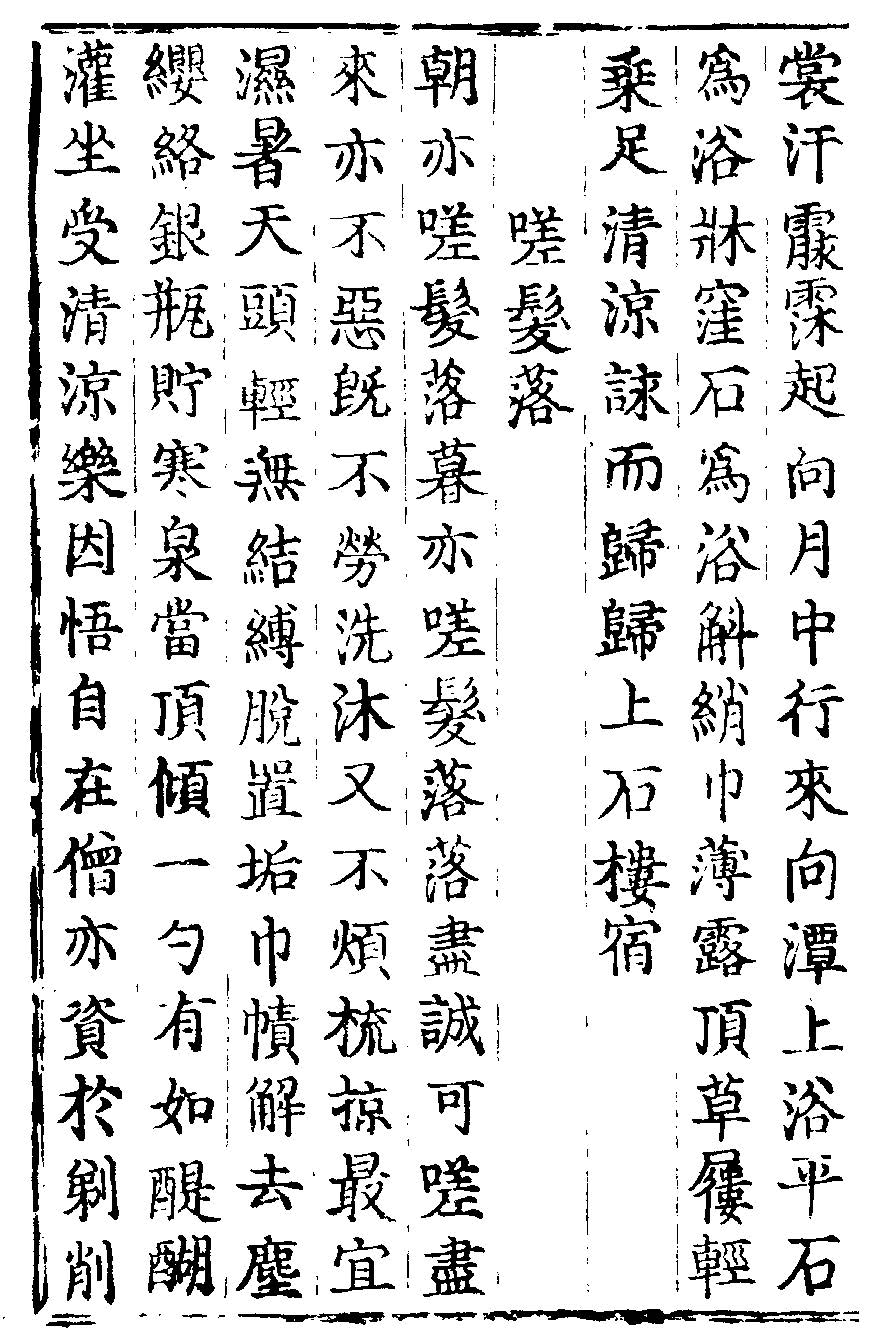 裳汗霢霂起向月中行來向潭上浴平石
為浴牀窪石為浴斛綃巾薄露頂草屨輕
乗足清涼詠而歸歸上石樓宿
嗟髮落
朝亦嗟髮落暮亦嗟髮落落盡誠可嗟盡
來亦不惡旣不勞洗沐又不煩梳掠最宜
濕暑天頭輕無結縛脫置垢巾幘解去塵
纓絡銀瓶貯寒泉當頂傾一勺有如醍醐
灌坐受清涼樂因悟自在僧亦資於剃削